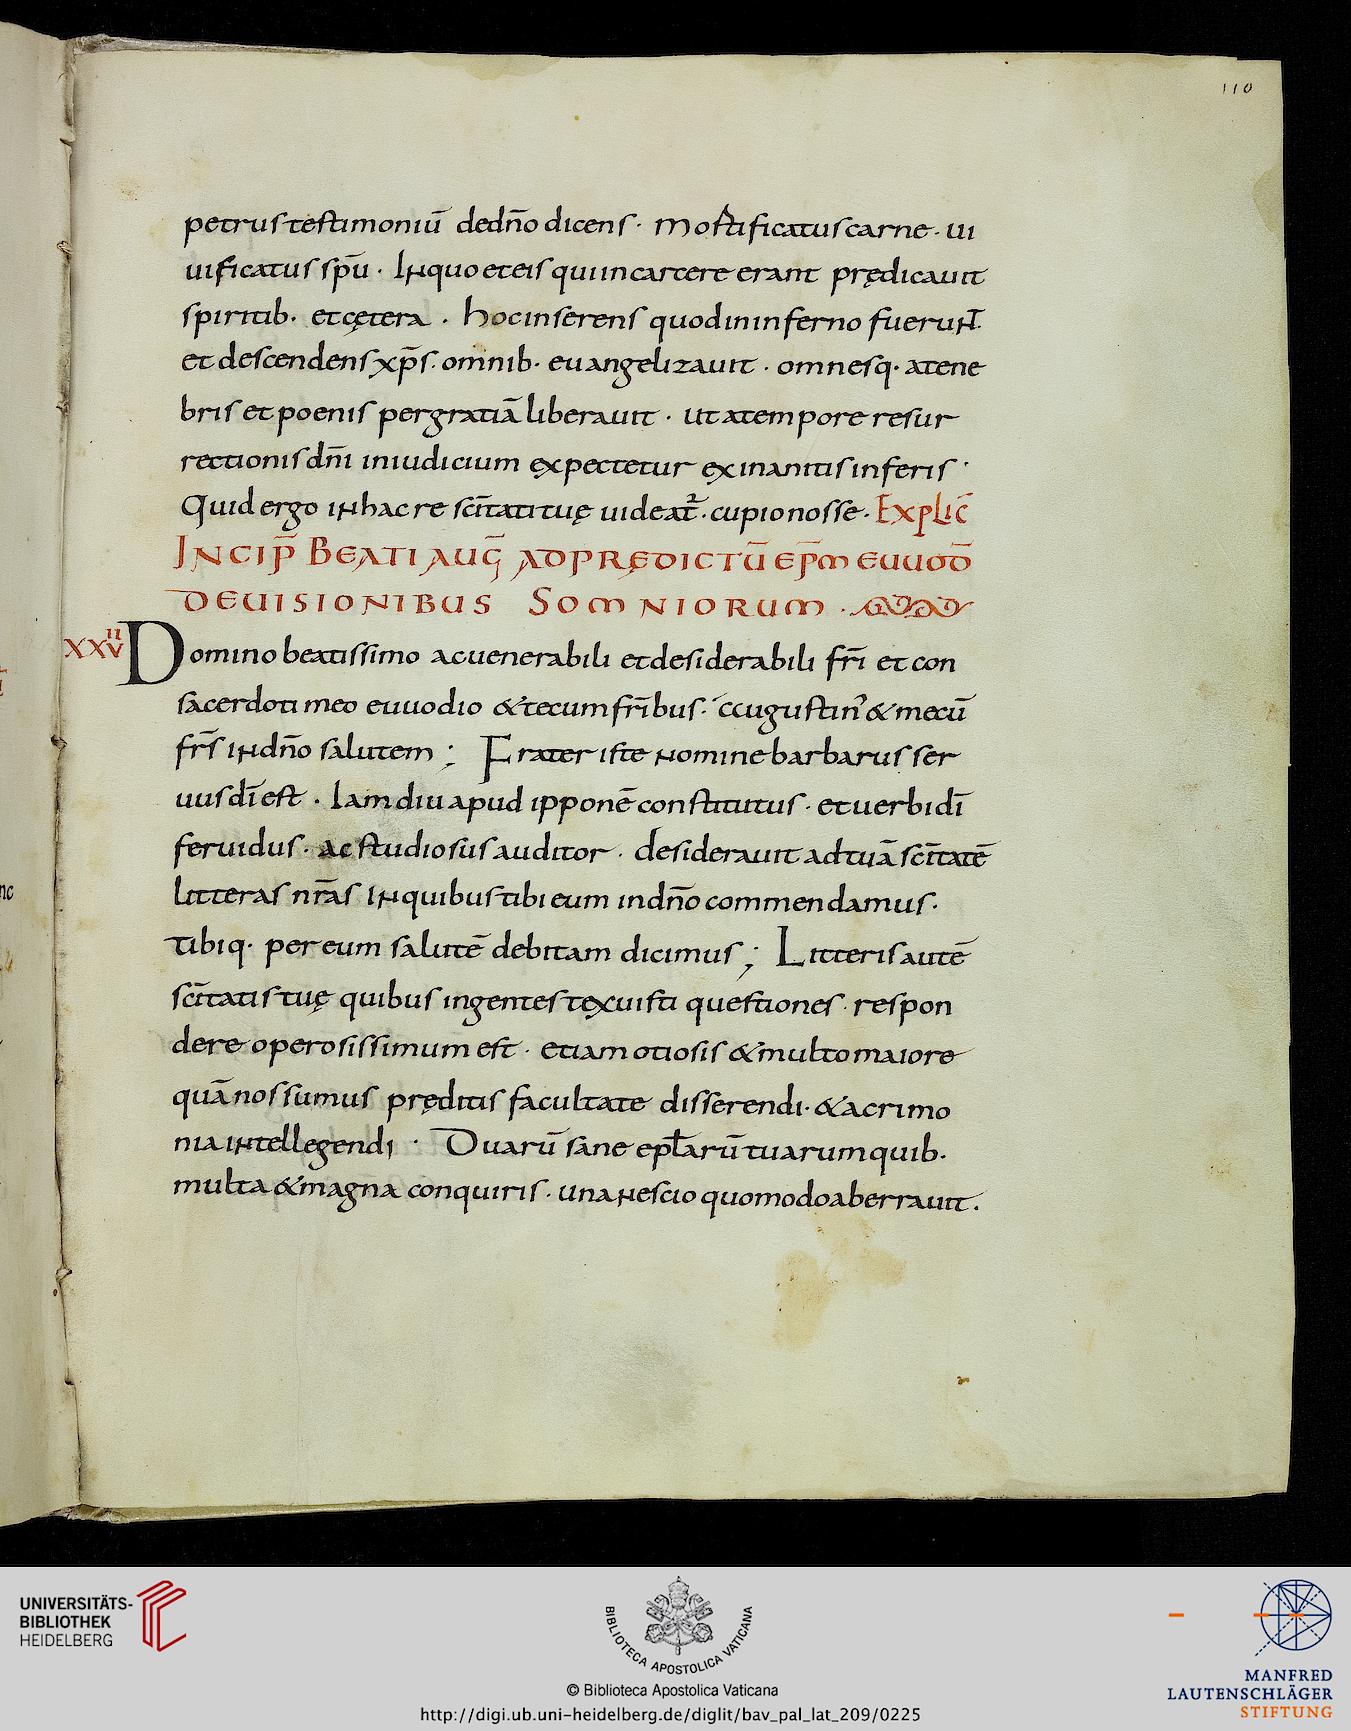 110
petrus testimoniū dedn̄o dicens · Mortificatus carne · ui
uificatus sp̄u · In quo et eis qui in carcere erant prędicauit
spiritib· et cętera · hoc inserens quod in inferno fuerunt̄
et descendens xp̄s · omnib· euangelizauit · omnesq· atene
bris et poenis per gratiā liberauit · ut a tempore resur
rectionis dn̄i in iudicium expectetur exinanitis inferis ·
Quid ergo in hac re sc̄itati tuę uideat̄ · cupio nosse · Explic̄
Incip̄ Beati Aug̅ ad prędictū ep̄m euuod̄
de uisionibus somniorum ·
XXVII
Domino beatissimo ac uenerabili et desiderabili fr̄i et con
sacerdoti meo euuodio & tecum fr̄ibus · augustin' & mecū
fr̄s in dn̄o salutem ; Frater iste nomine barbarus ser
uus dī est · Iam diu apud ipponē constitutus · et uerbi dī
feruidus · ac studiosus auditor · desiderauit ad tuā sc̄itatē
litteras nr̄as in quibus tibi eum in dn̄o commendamus ·
tibiq· per eum salutē debitam dicimus ; Litteris autē
sc̄itatis tuę quibus ingentes texuisti questiones · respon
dere operosissimum est · etiam otiosis & multo maiore
quā nos sumus pręditis facultate disserendi · & acrimo
nia intellegendi · Duarū sane epl̄arū tuarum quib·
multa & magna conquiris · una nescio quomodo aberrauit ·
UNIVERSITÄTS-
BIBLIOTHEK
HEIDELBERG
BIBLIOTECA APOSTOLICA VATICANA
© Biblioteca Apostolica Vaticana
http://digi.ub.uni-heidelberg.de/diglit/bav_pal_lat_209/0225
MANFRED
LAUTENSCHLÄGER
STIFTUNG